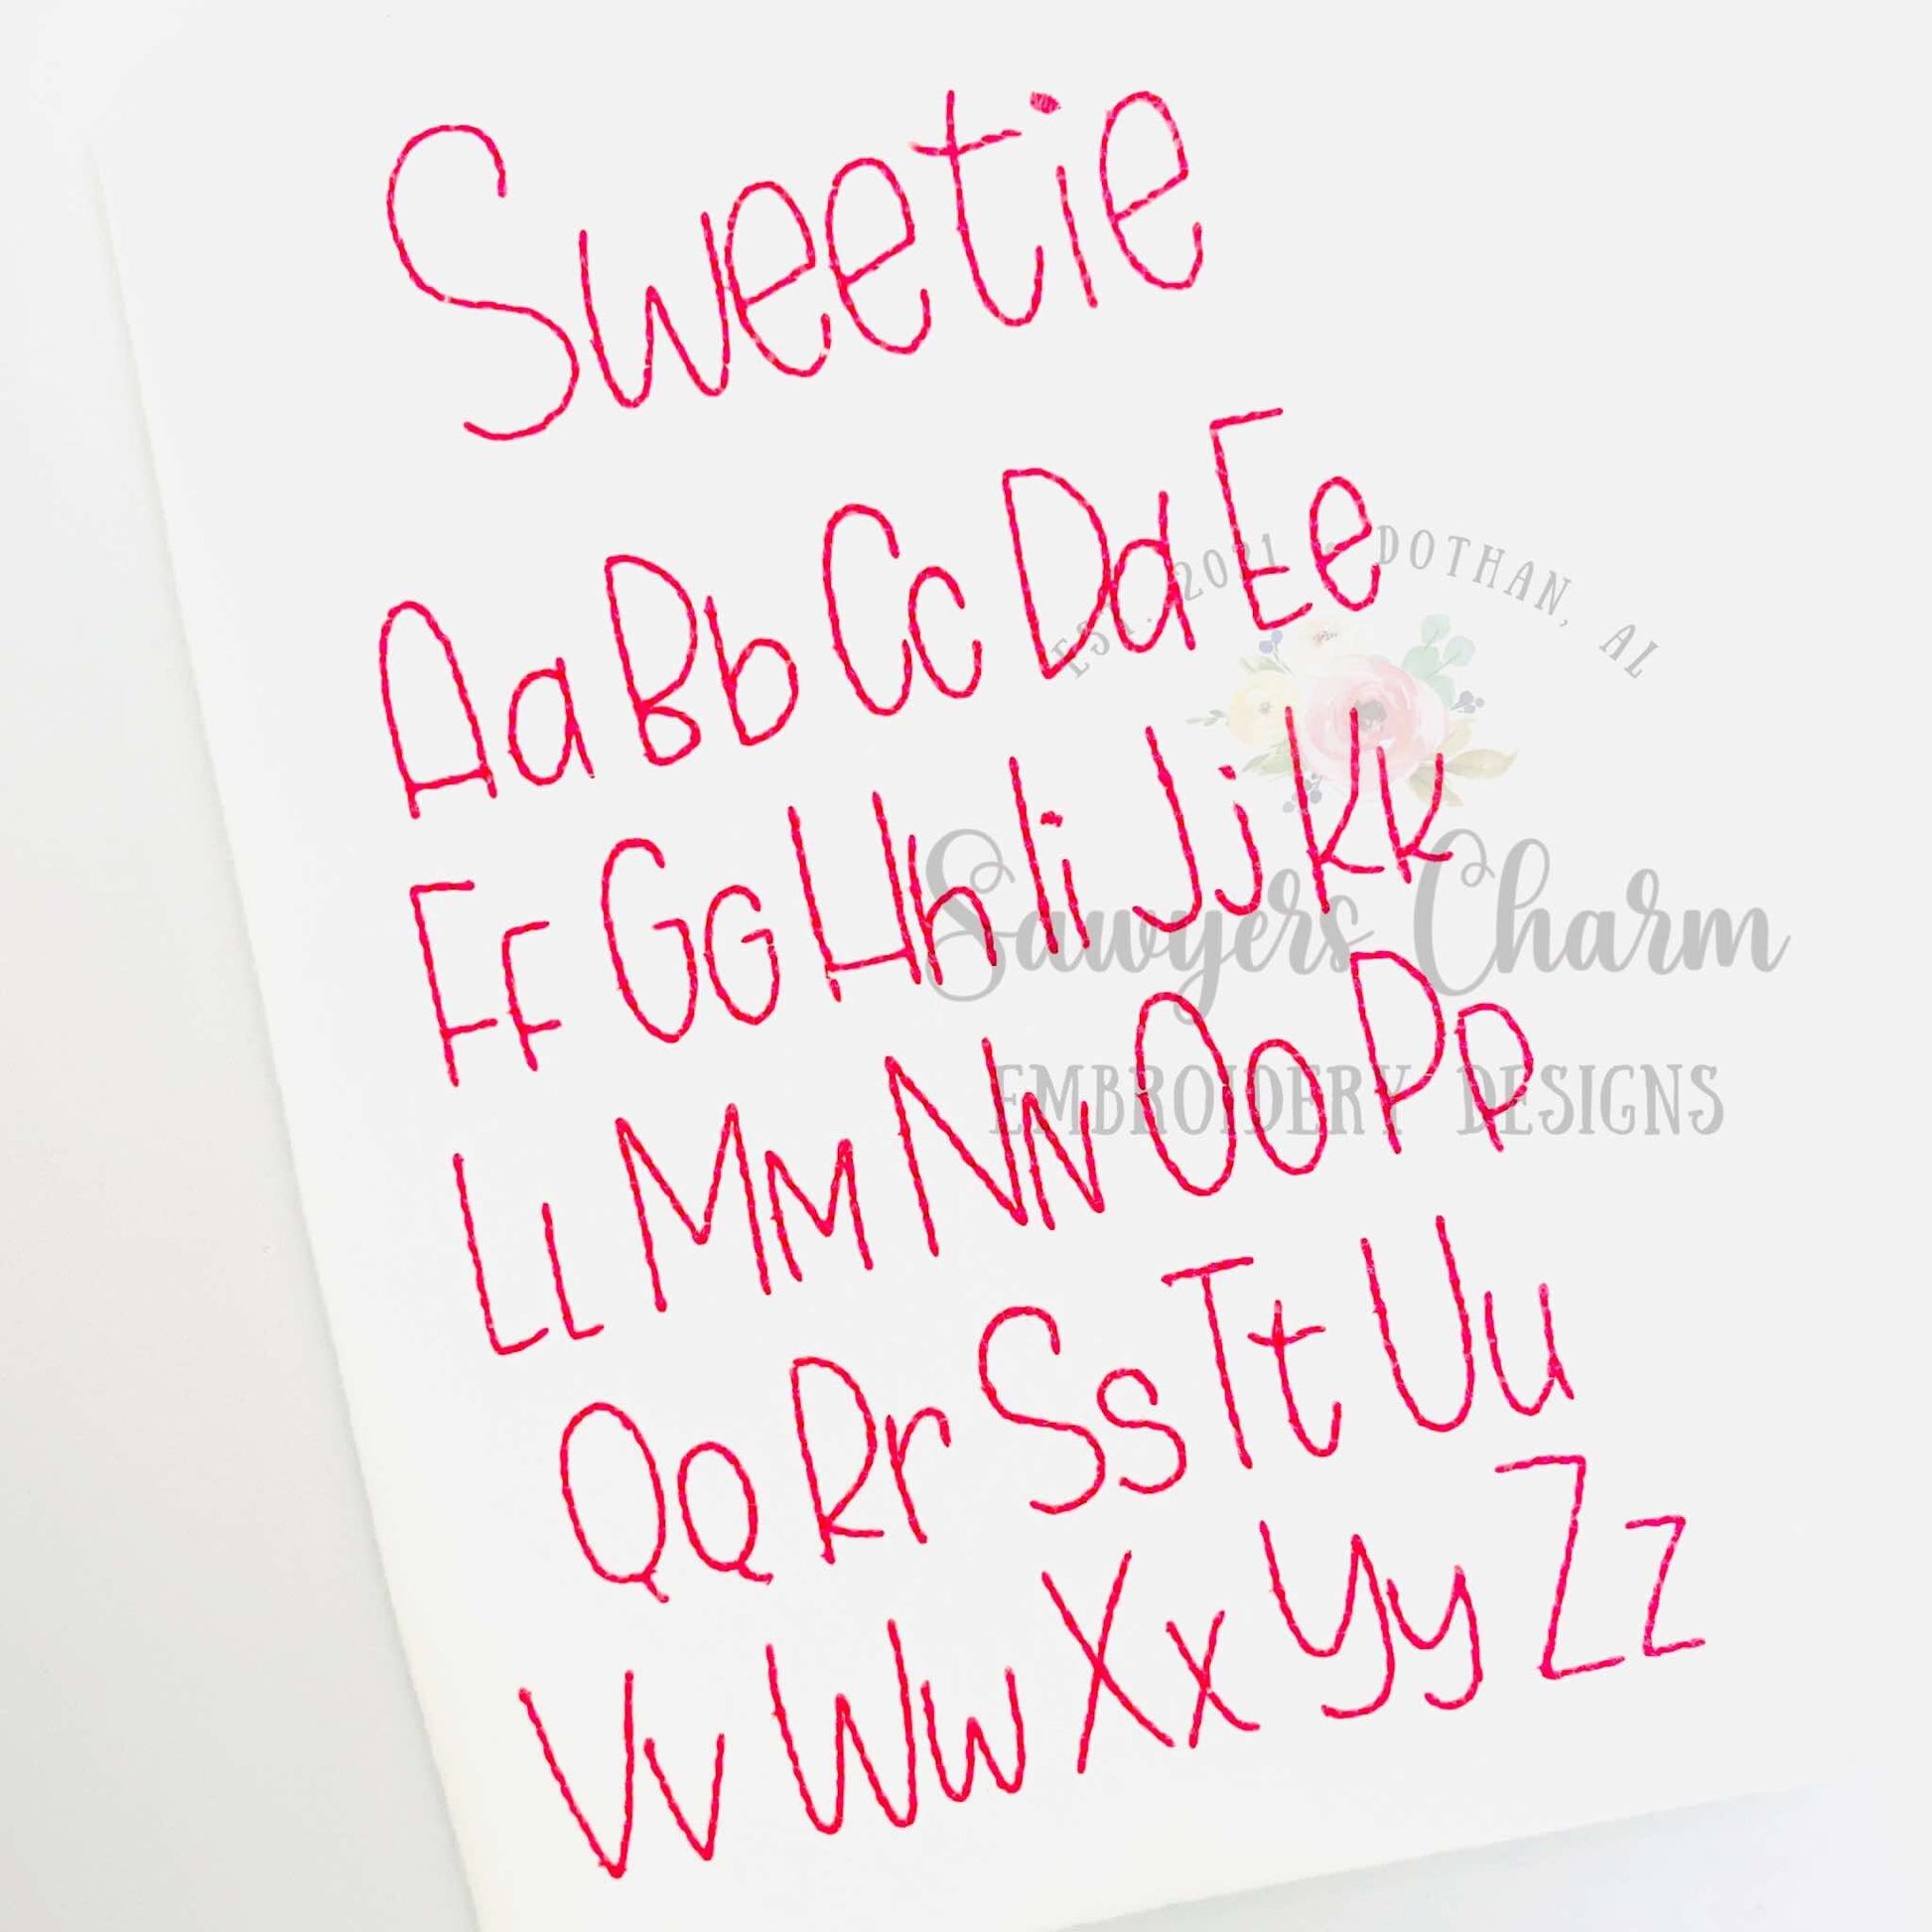 Sweetie
Aa Bb Cc Dd Ee
Ff Gg Hh Ii Jj Kk
Ll Mm Nn Oo Pp
Qq Rr Ss Tt Uu
Vv Ww Xx Yy Zz
EST. 2021 • DOTHAN, AL
Sawyers Charm
EMBROIDERY DESIGNS